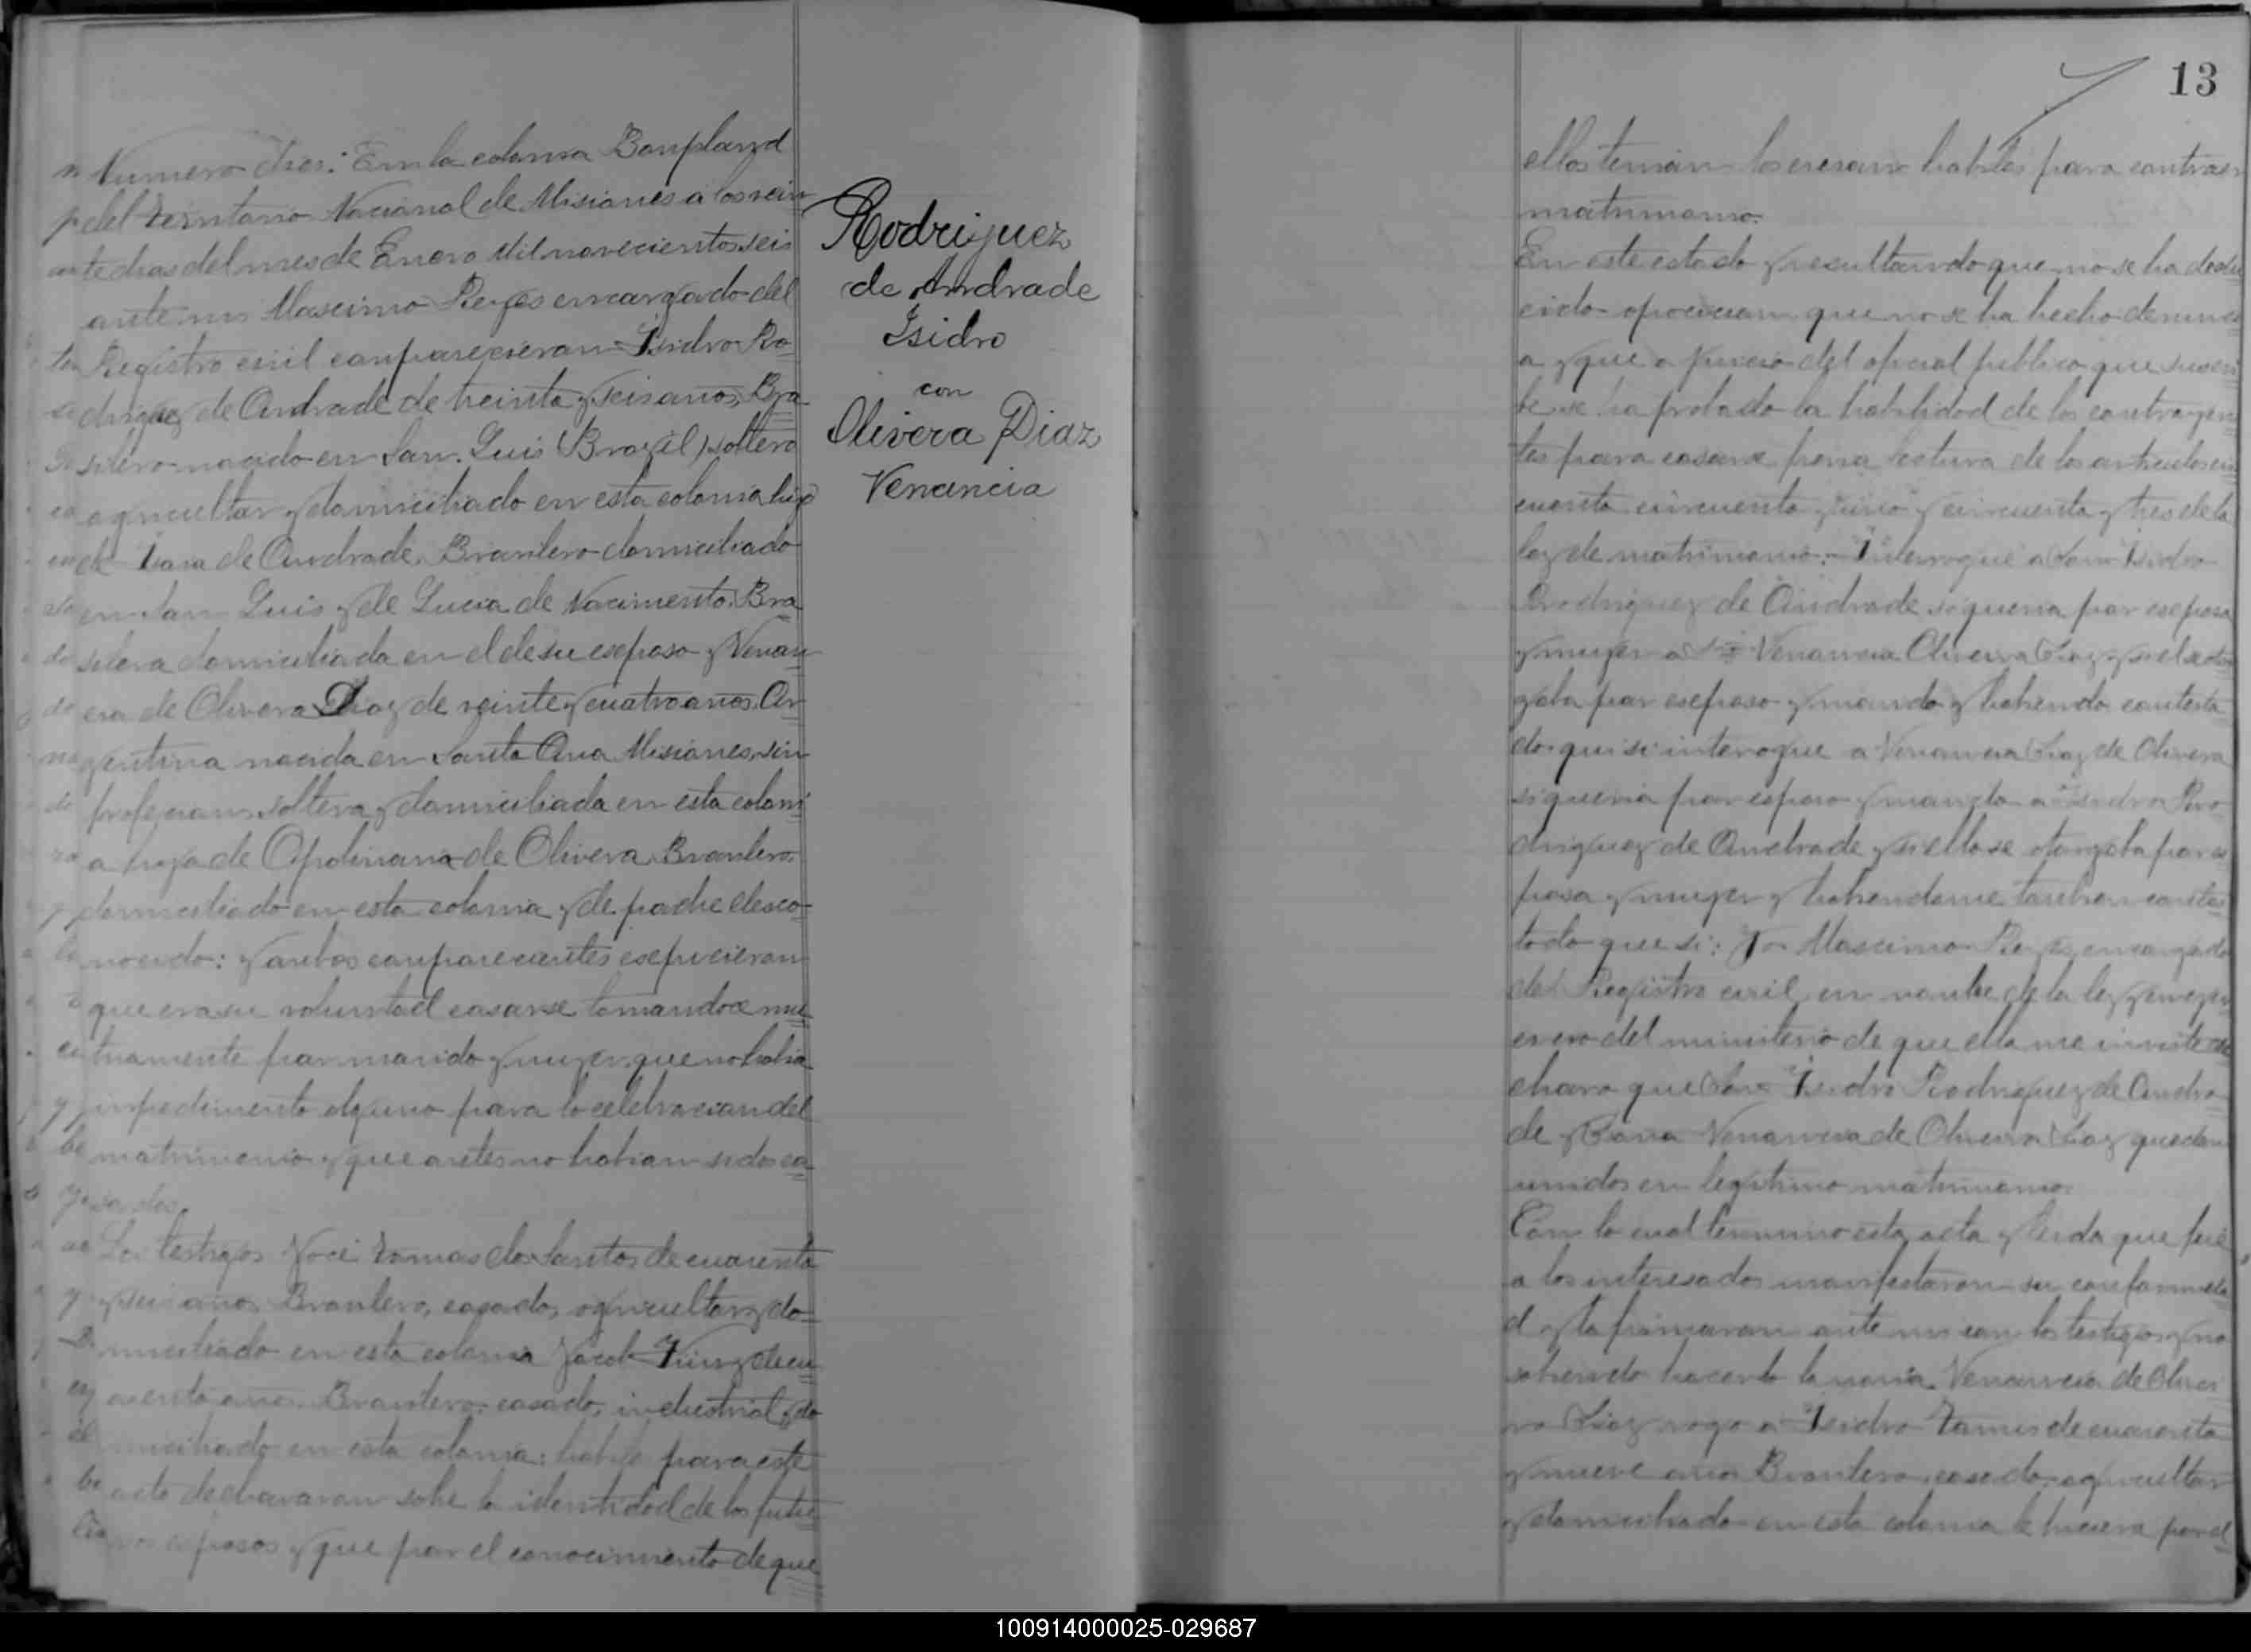 Numero tres: En la colonia Bonpland
del Territorio Nacional de Misiones a los vein
te dias del mes de Enero Mil novecientos seis
ante mi Mascimo Reyes encargado del
Registro civil comparecieron Isidro Ro=
driguez de Andrade de treinta y seis anos, Bra
silero nacido en San Luis (Brazil) soltero
agricultor y domiciliado en esta colonia hijo
de de Andrade, Brasilero domiciliado
en San Luis y de Lucia de Nacimento, Bra
silera domiciliada en el de su esposo y Venan
cia de Olivera Diaz de veinte y cuatro anos, Ar
gentina nacida en Santa Ana Misiones, sin
profecion, soltera y domiciliada en esta coloni
a hija de de Olivera, Brasilero,
domiciliado en esta colonia y de padre desco=
nocido: y ambos comparecientes espucieron
que era su voluntad casarse tomandoce mu
tuamente por marido y muger, que no habia
impedimento alguno para la celebracion del
matrimonio y que antes no habian sidos ca
sados.
Los testigos Jocé Tomas dos Santos de cuarenta
y seis anos, Brasilero, casado, agricultor y do=
miciliado en esta colonia Jacob de cu
arenta anos, Brasilero, casado, industrial, do
miciliado en esta colonia: habiles para este
acto declararon sobre la identidad de los futu=
ros esposos y que por el conocimiento de que
Rodriguez
de Andrade
Isidro
con
Olivera Diaz
Venancia
13
ellos tenian los creian habiles para contraer
matrimonio.
En este estado y resultando que no se ha dedu
cido oposicion que no se ha hecho denunci
a y que a juicio del oficial publico que suscri
be se ha probado la habilidad de los contrayen
tes para casarse previa lectura de los articulos cin
cuenta cincuenta y uno y cincuenta y tres de la
ley de matrimonio: Interogué a Don Isidro
Rodriguez de Andrade si queria por esposa
y muger a Venancia Olivera Diaz y si el se otor
gaba por esposo y marido y habiendo contesta
do que si interogue a Venancia Diaz de Olivera
si queria por esposo y marido a Isidro Ro
driguez de Andrade y si ella se otorgaba por es
posa y muger y habiendome tanbien contes
tado que si: Yo Mascimo Reyes, encargado
del Registro civil en nonbre de la ley y en ejer
cicio del ministerio de que ella me inviste de
claro que Don Isidro Rodriguez de Andra
de y Dona Venancia de Olivera Diaz quedan
unidos en legitimo matrimonio.
Con lo cual termino esta acta y leida que fué
a los interesados manifestaron su conformida
d y la firmaron ante mi con los testigos y no
sabiendo hacerlo la novia Venancia de Olive
ra Diaz rogo a Isidro de cuarenta
y nueve anos Brasilero, casado, agricultor
y domiciliado en esta colonia le hiciera por el
100914000025-029687